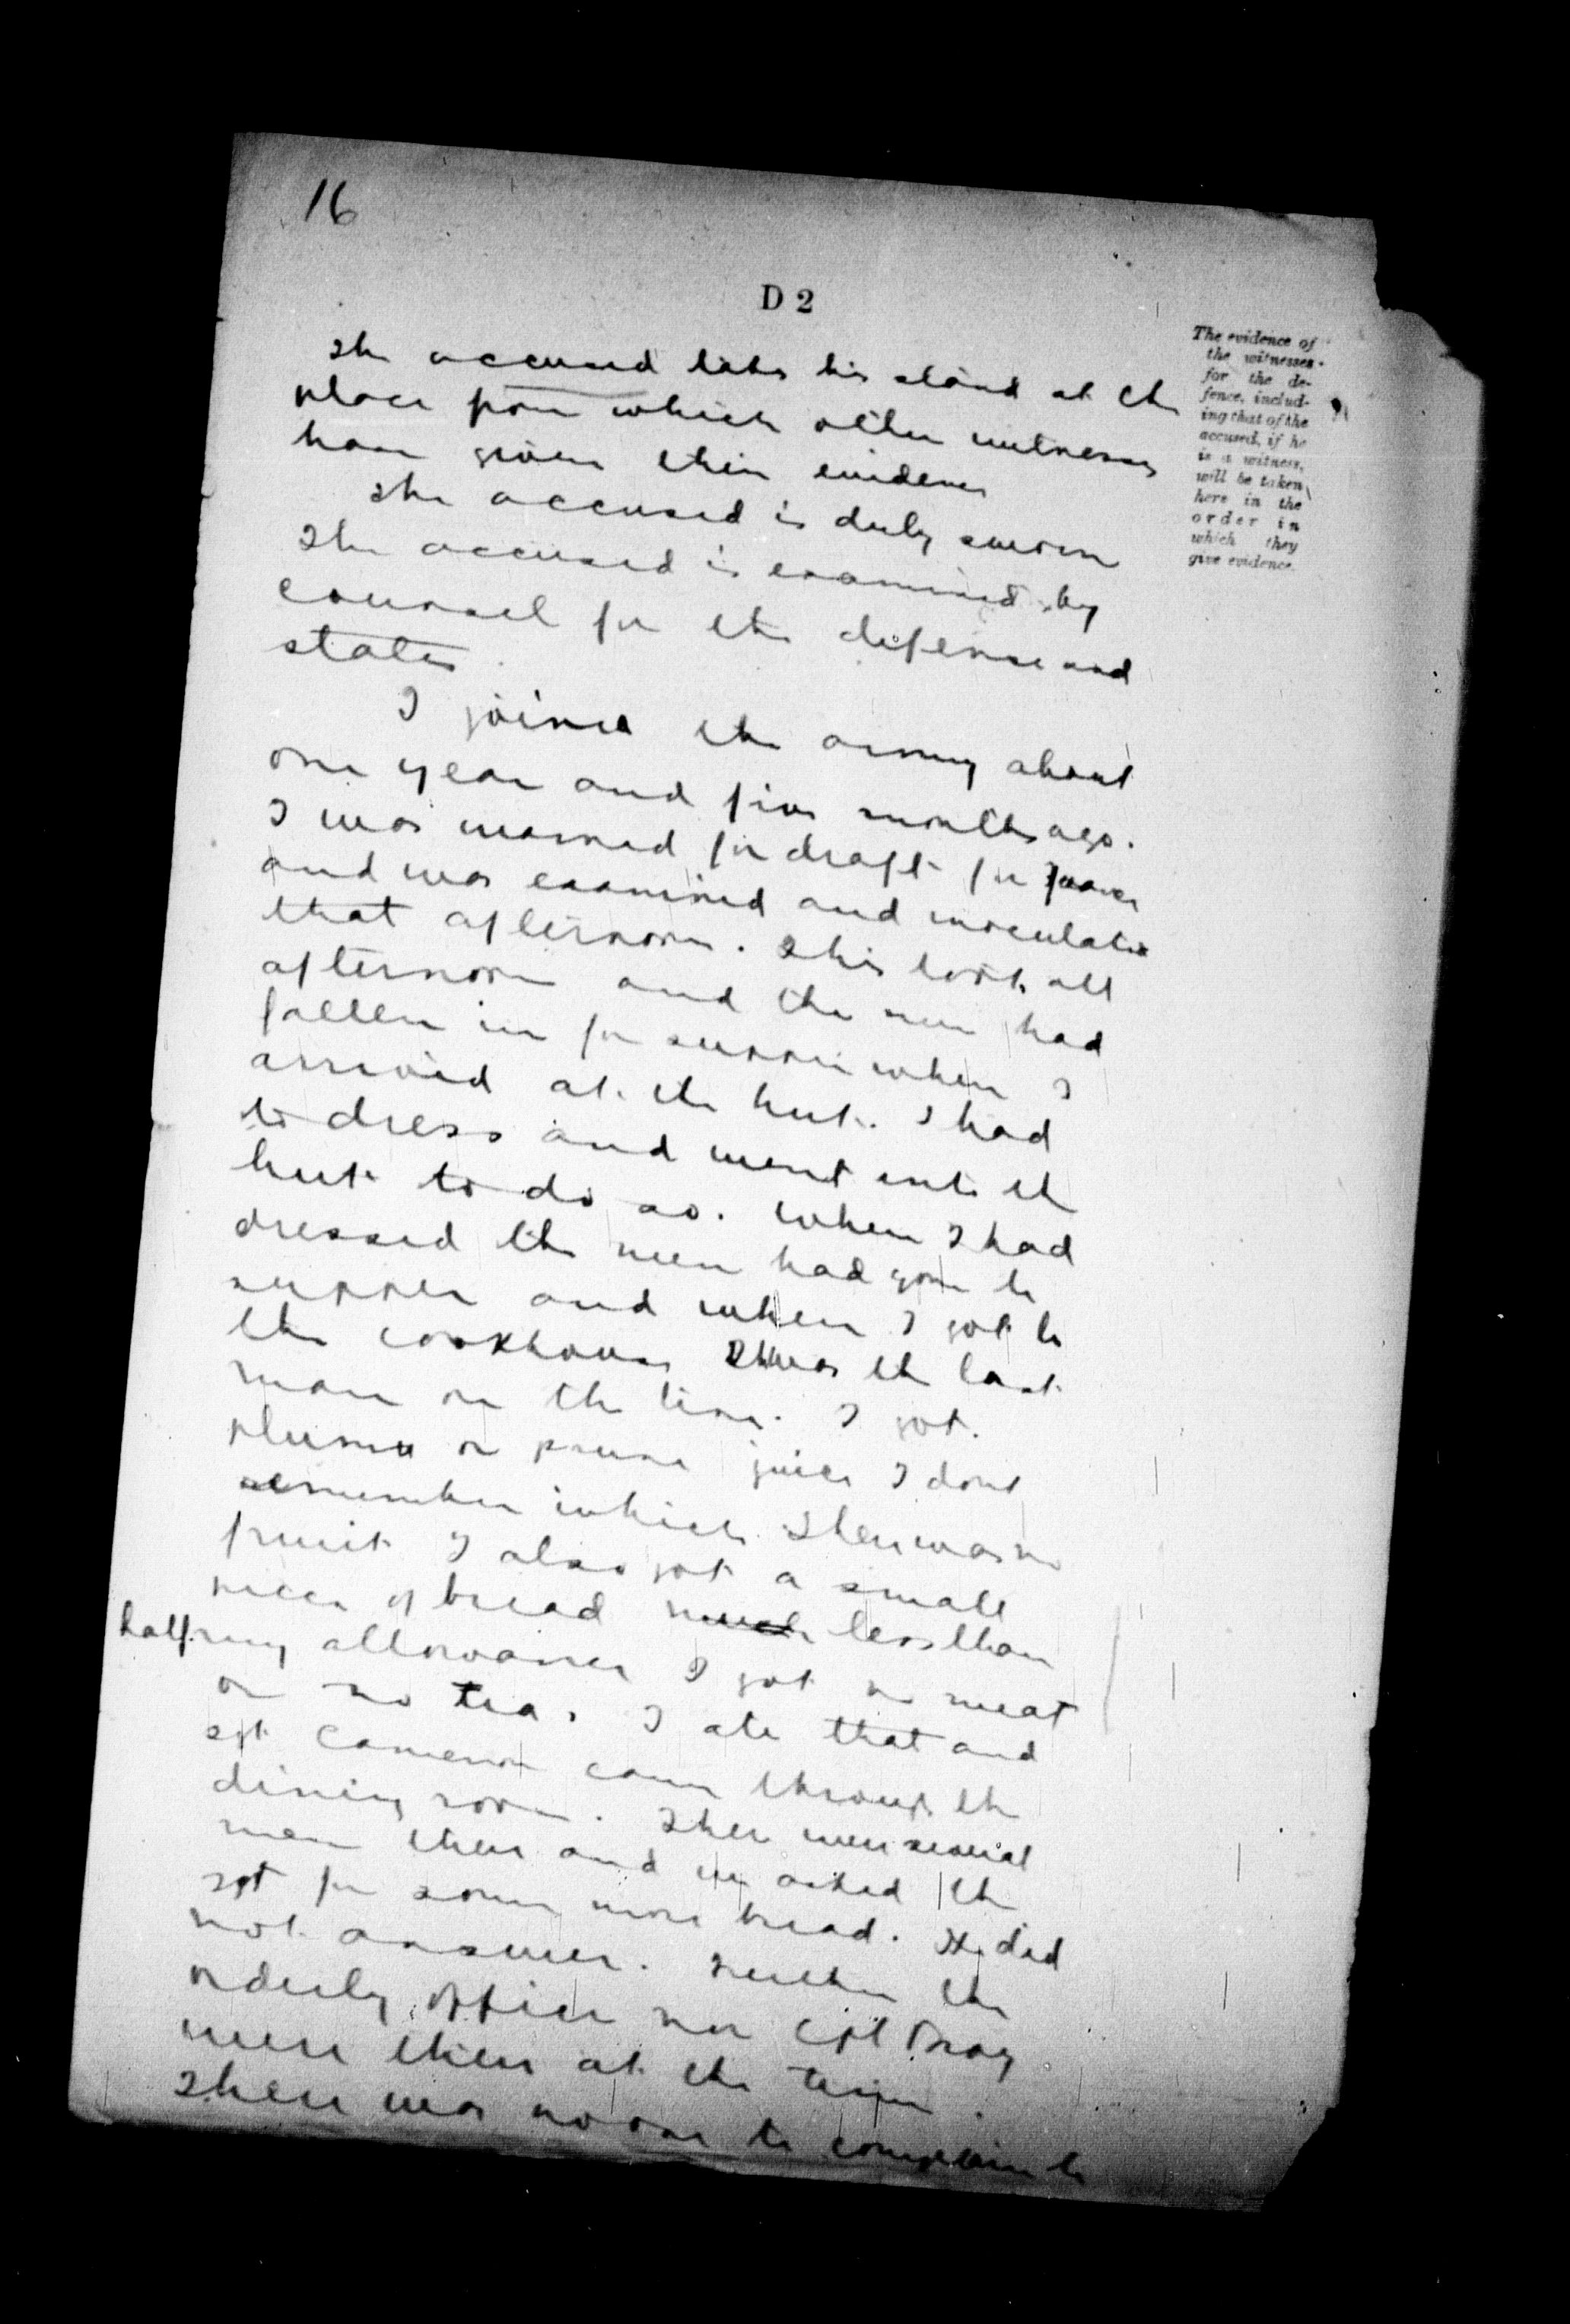 16
D 2
The accused takes his stand at the
place from which other witnesses
have given their evidence
The accused is duly sworn
The accused is examined by
counsel for the defense and
states.
I joined the army about
one year and five months ago.
I was warned for draft for France
and was examined and inoculated
that afternoon. This took all
afternoon and the men had
fallen in for supper when I
arrived at the hut. I had
to dress and went into the
hut to do so. When I had
dressed the men had gone to
supper and when I got to
the cookhouse I was the last
man on the line. I got
plums or prune juice I dont
remember which. There was no
fruit I also got a small
piece of bread much less than
half my allowance I got no meat
or no tea. I ate that and
sgt Cameron came through the
dining room. There were several
men there and we asked the
sgt for some more bread. He did
not answer. Neither the
orderly officer nor Cpl Bray
were there at the time.
There was no one to complain to
The evidence of
the witnesses
for the de-
fence, includ-
ing that of the
accused, if he
is a witness,
will be taken
here in the
order in
which they
give evidence.